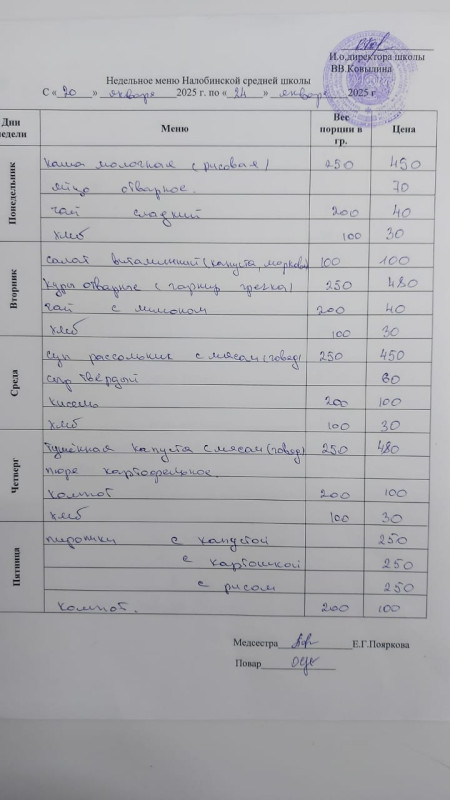 И.о.директора школы
ВВ.Ковылина
Недельное меню Налобинской средней школы
С « 20 » января 2025 г. по « 24 » января 2025 г
Дни недели Меню Вес порции в гр. Цена
Понедельник
каша молочная (рисовая) 250 450
яйцо отварное. 70
чай сладкий 200 40
хлеб 100 30
Вторник
салат витаминный (капуста, морковь) 100 100
куры отварные (гарнир гречка) 250 480
чай с лимоном 200 40
хлеб 100 30
Среда
суп рассольник с мясом (говяд) 250 450
сыр твёрдый 60
кисель 200 100
хлеб 100 30
Четверг
тушённая капуста с мясом (говяд) 250 480
пюре картофельное.
компот 200 100
хлеб 100 30
Пятница
пирожки с капустой 250
с картошкой 250
с рисом 250
компот. 200 100
Медсестра Е.Г.Пояркова
Повар